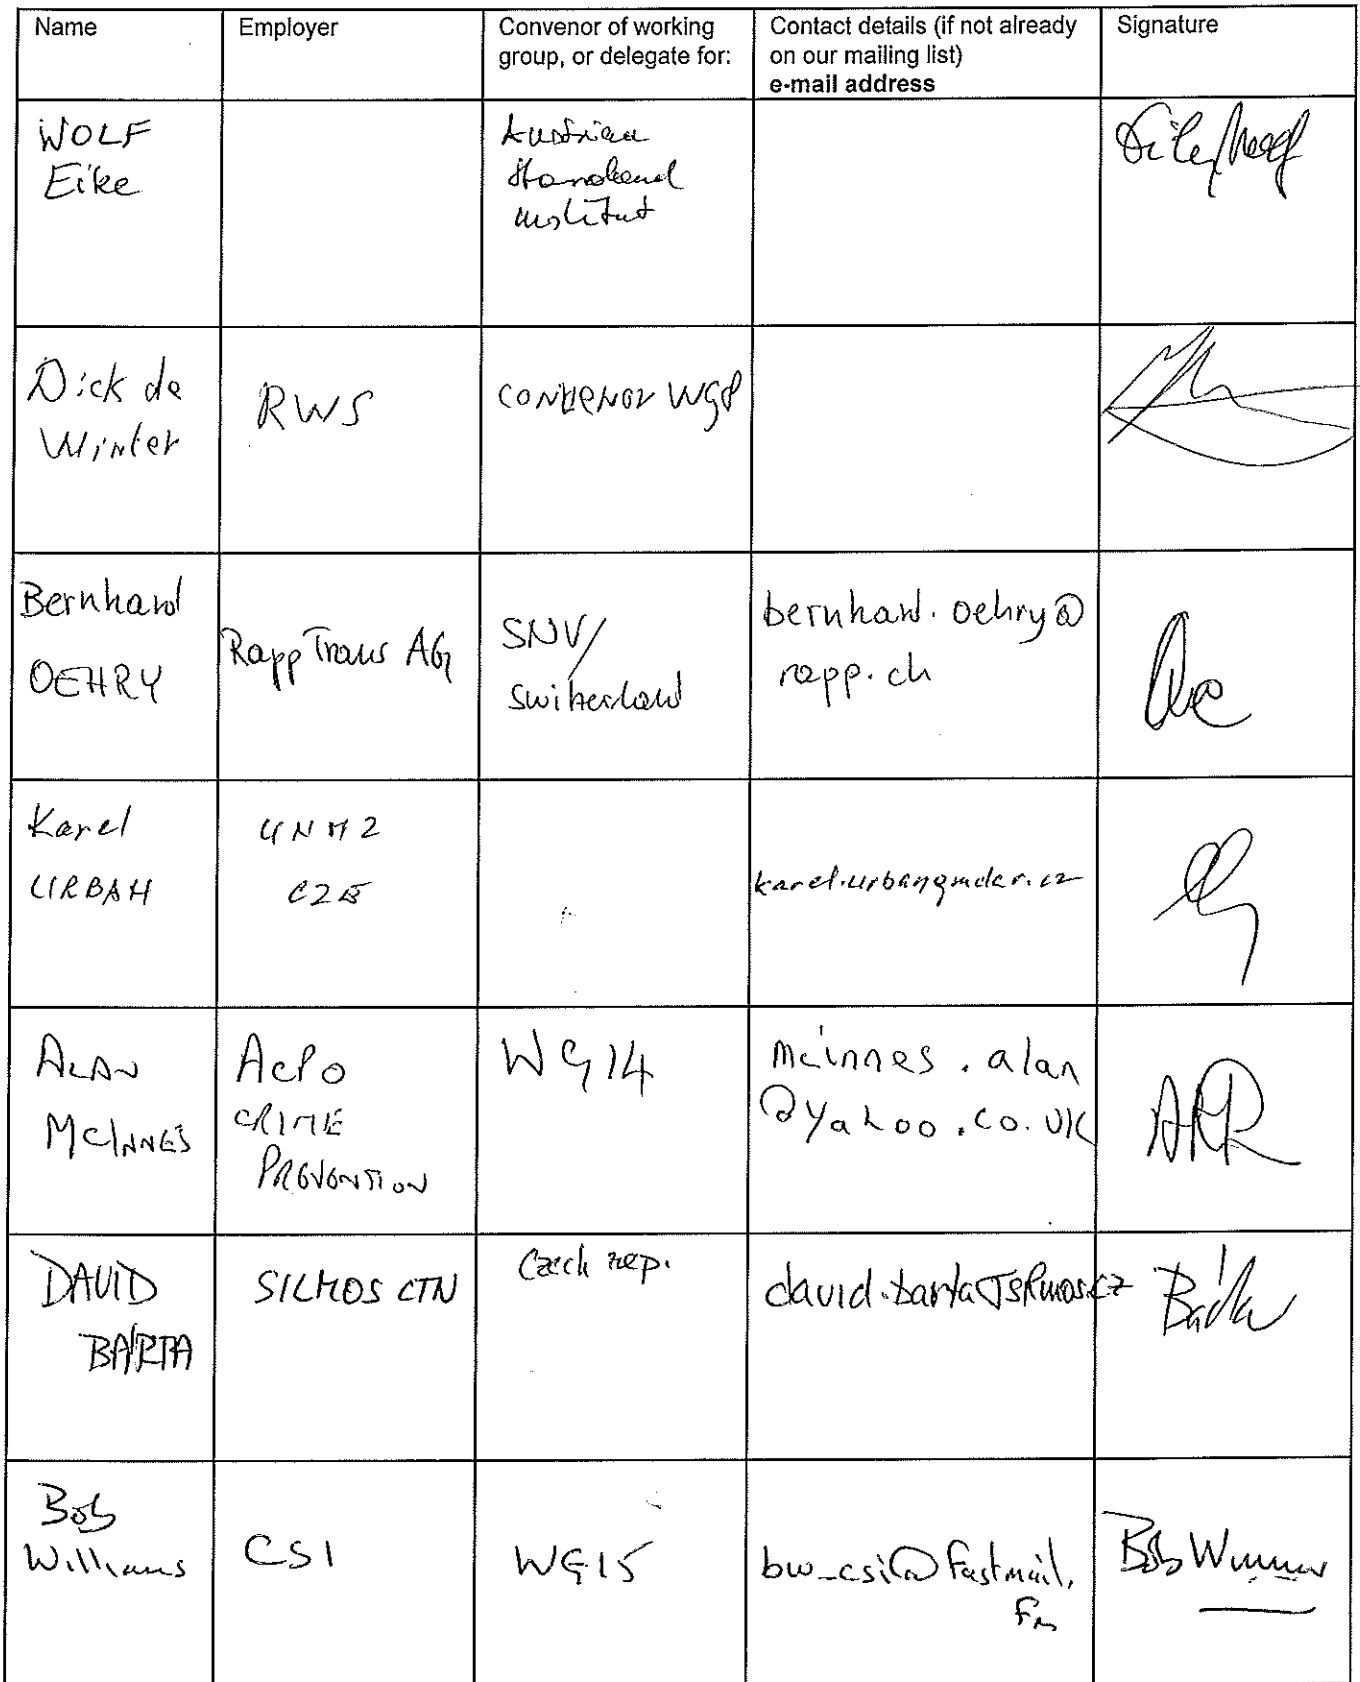 Name
Employer
Convenor of working
group, or delegate for:
Contact details (if not already
on our mailing list)
e-mail address
Signature
WOLF
Eike
Austrian
Standard
Institut
Dick de
Winter
RWS
CONVENOR WG8
Bernhard
OEHRY
Rapp Trans AG
SNV/
Switzerland
bernhard.oehry@
rapp.ch
Karel
URBAN
CZE
ALAN
MCINNES
ACPO
CRIME
PREVENTION
WG14
mcinnes.alan
@yahoo.co.uk
DAVID
BÁRTA
SILMOS CTN
Czech rep.
Bob
Williams
CSI
WG15
bw_csi@fastmail.
fm
Bob